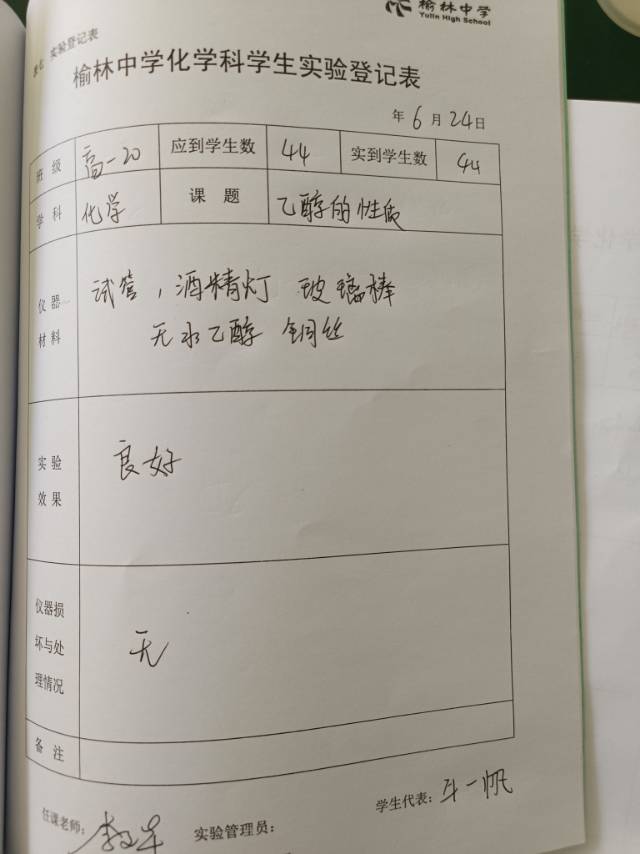 榆林中学
Yulin High School
实验登记表
榆林中学化学科学生实验登记表
年 6 月 24 日
班 级 高一20 应到学生数 44 实到学生数 44
学 科 化学 课 题 乙醇的性质
仪 器
材 料
试管，酒精灯 玻璃棒
无水乙醇 铜丝
实 验
效 果
良好
仪器损
坏与处
理情况
无
备 注
任课老师： 实验管理员： 学生代表：